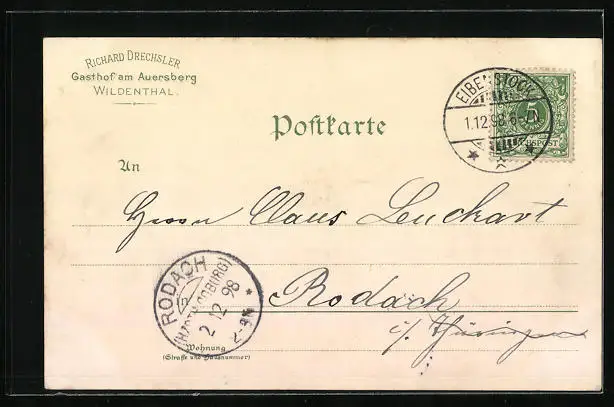 RICHARD DRECHSLER
Gasthof am Auersberg
WILDENTHAL.
Postkarte
EIBENSTOCK
1.12.98 6-7N
5
An
Herrn Claus Leuchart
RODACH
(HZGTH. COBURG)
2 12 98
2-3N
Rodach
i/Thüringen
Wohnung
(Straße und Hausnummer)